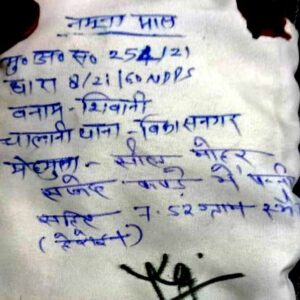 नमूना माल
मु० अ० सं० 254/21
धारा 8/21/60 NDPS
बनाम - शिवानी
चालानी थाना - विकासनगर
सील मोहर
सफेद कपड़े में पन्नी
सहित 7.52 ग्राम